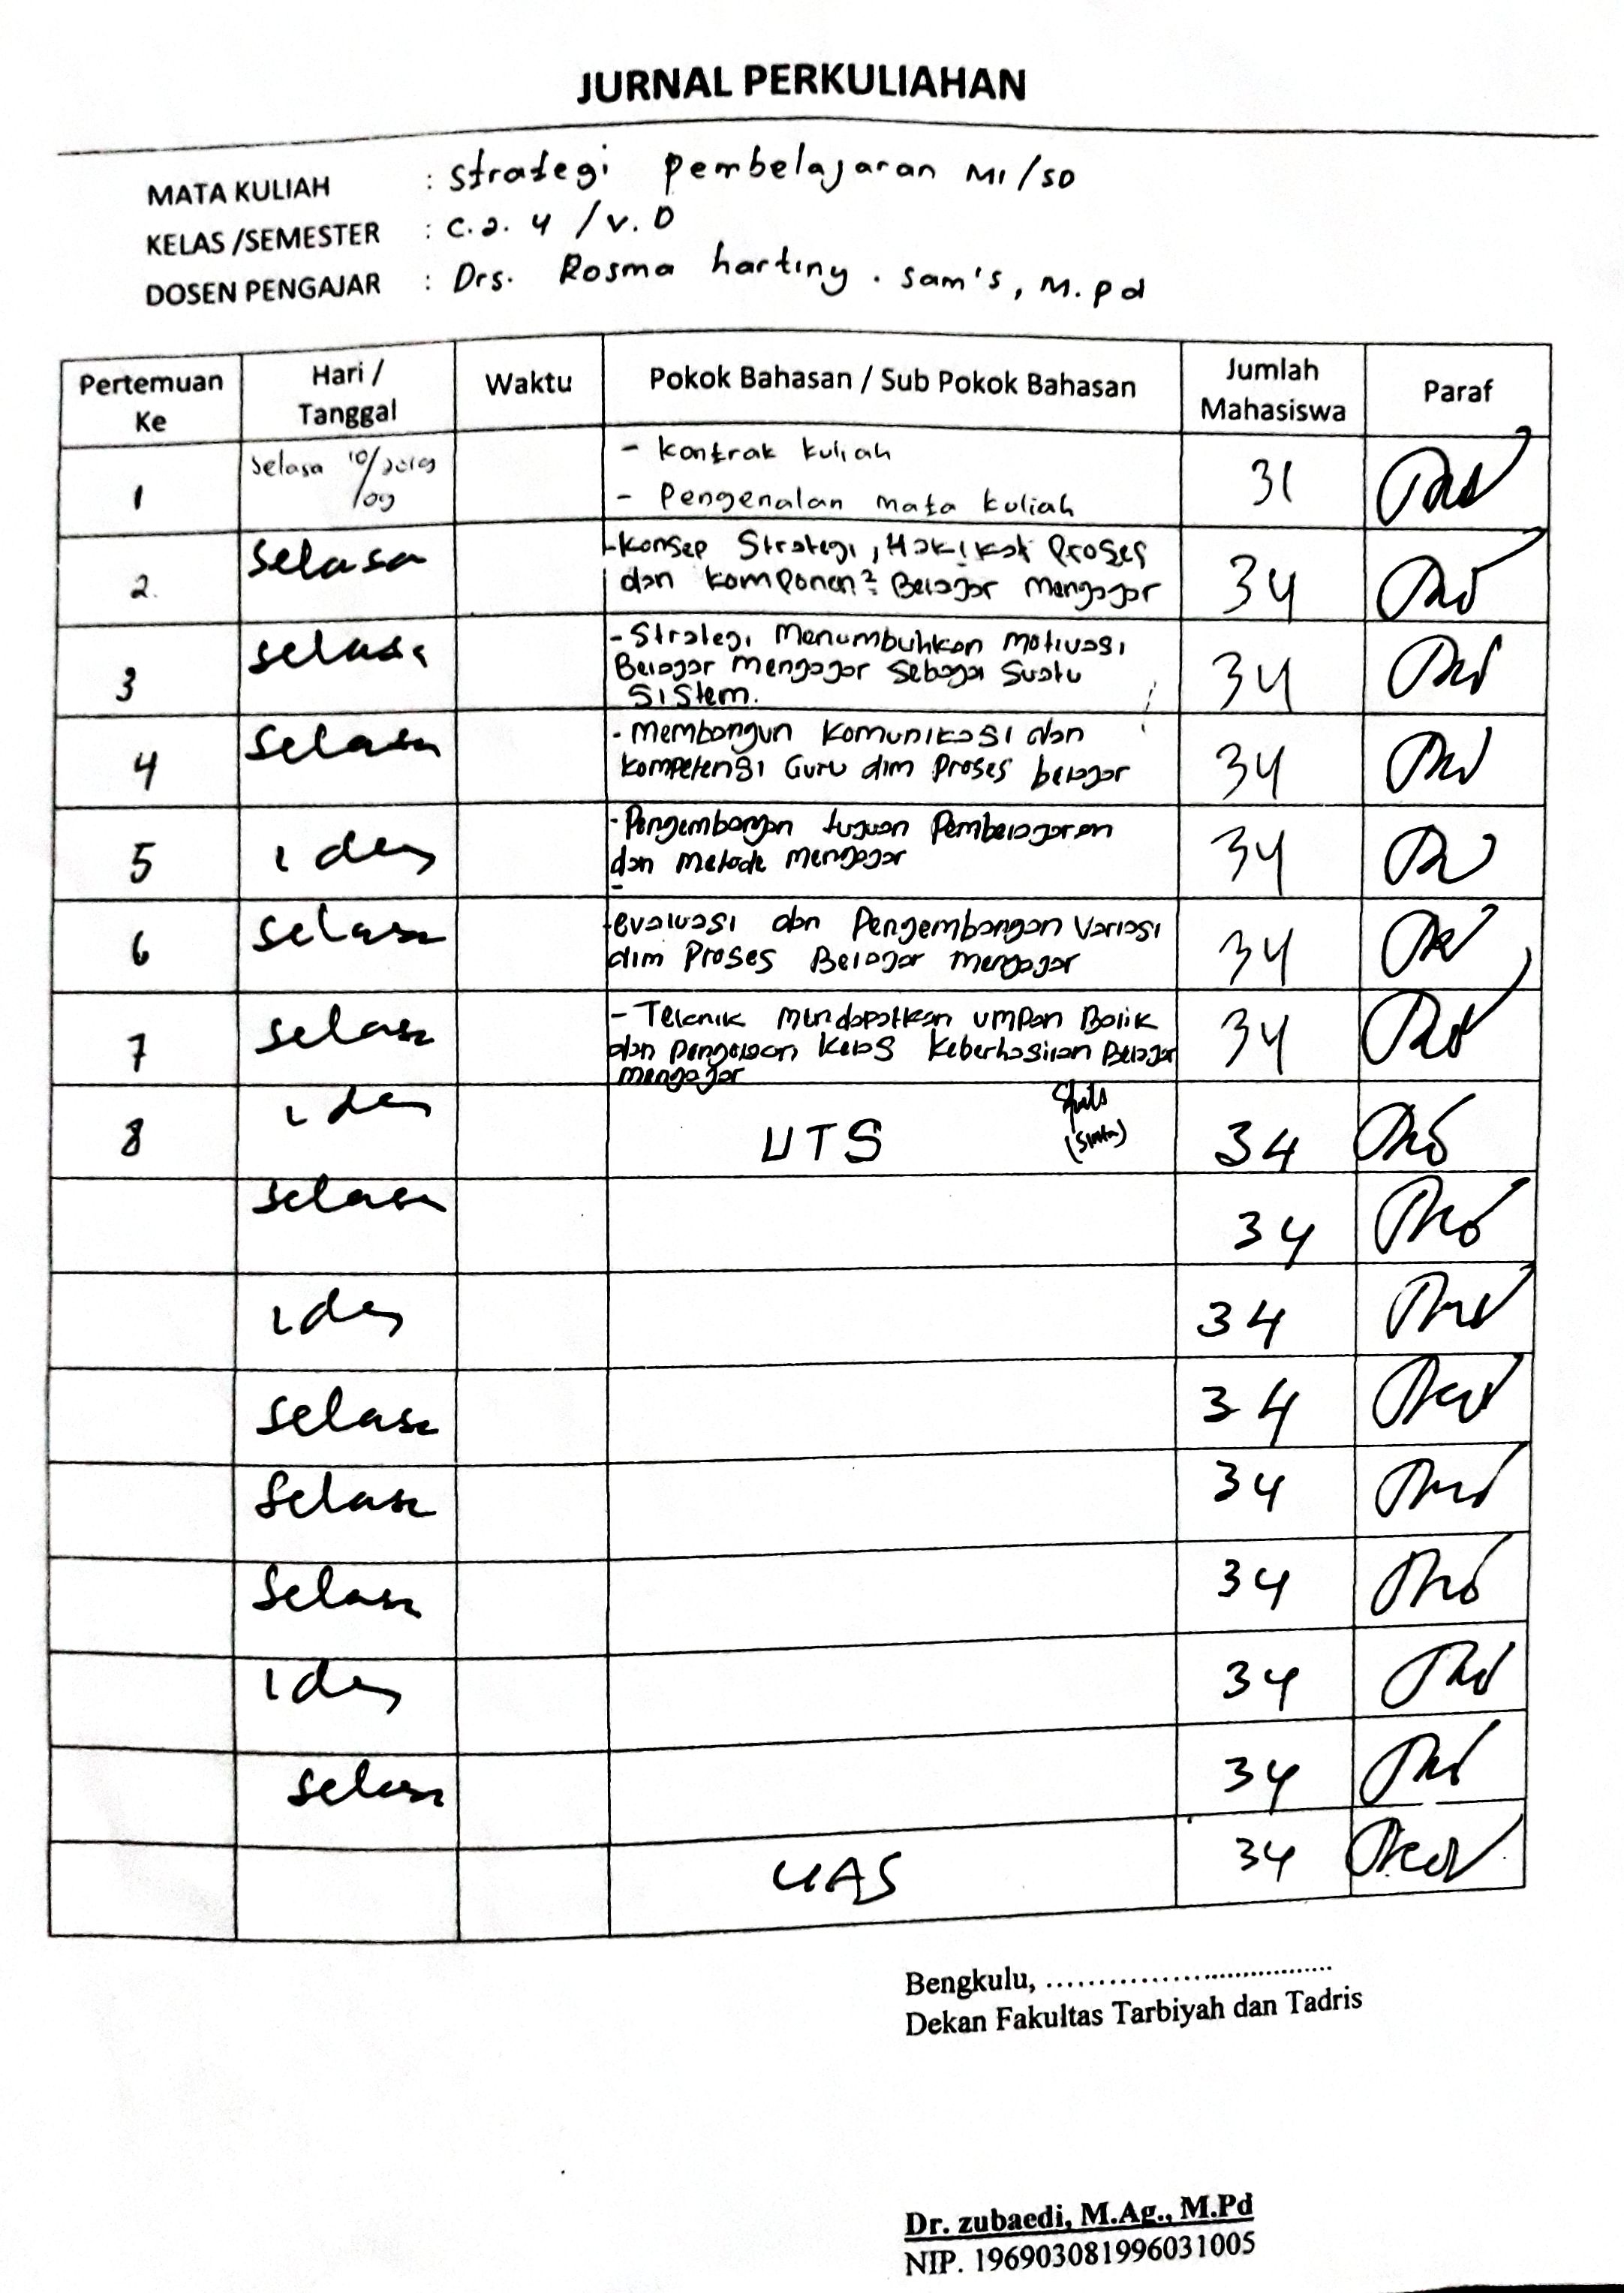 JURNAL PERKULIAHAN
MATA KULIAH : Strategi pembelajaran MI/SD
KELAS /SEMESTER : C.2.4 / V.D
DOSEN PENGAJAR : Drs. Rosma hartiny. Sam's, M.Pd
Pertemuan Ke Hari / Tanggal Waktu Pokok Bahasan / Sub Pokok Bahasan Jumlah Mahasiswa Paraf
1 Selasa 10/09/2019 - Kontrak kuliah 31
- Pengenalan mata kuliah
2. Selasa - Konsep Strategi, Hakikat Proses 34
dan komponen² Belajar Mengajar
3 Selasa - Strategi Menumbuhkan Motivasi 34
Belajar Mengajar Sebagai Suatu
Sistem.
4 Selasa - Membangun Komunikasi dan 34
Kompetensi Guru dlm Proses belajar
5 idem - Pengembangan tujuan Pembelajaran 34
dan Metode Mengajar
6 Selasa - evaluasi dan Pengembangan Variasi 34
dlm Proses Belajar Mengajar
7 Selasa - Teknik mendapatkan umpan Balik 34
dan pengelolaan Kelas Keberhasilan Belajar
mengajar
8 idem UTS (Sinta) 34
Selasa 34
idem 34
Selasa 34
Selasa 34
Selasa 34
idem 34
Selasa 34
UAS 34
Bengkulu, ..................................
Dekan Fakultas Tarbiyah dan Tadris
Dr. zubaedi, M.Ag., M.Pd
NIP. 196903081996031005